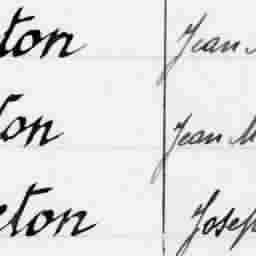 ton Jean M
on Jean M
eton Joseph